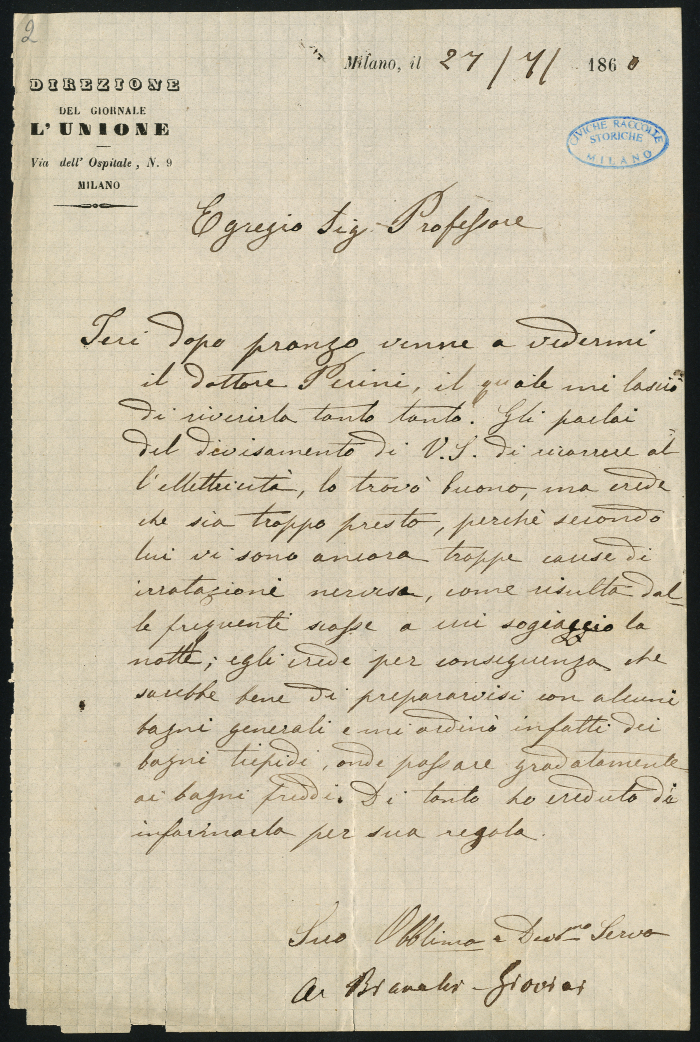 2
Milano, il 27/7/ 1860
DIREZIONE
DEL GIORNALE
L'UNIONE
Via dell' Ospitale, N. 9
MILANO
CIVICHE RACCOLTE
STORICHE
MILANO
Egregio Sig. Professore
Ieri dopo pranzo venne a vedermi
il dottore Perini, il quale mi lasciò
di riverirla tanto tanto. Gli parlai
del divisamento di V. S. di ricorrere al
l'elettricità, lo trovò buono, ma crede
che sia troppo presto, perchè secondo
lui vi sono ancora troppe cause di
irratazione nervosa, come risulta dal-
le frequenti scosse a cui sogiaccio la
notte; egli crede per conseguenza che
sarebbe bene di prepararvisi con alcuni
bagni generali e mi ordinò infatti dei
bagni tiepidi, onde passare gradatamente
ai bagni freddi. Di tanto ho creduto di
informarla per sua regola.
Suo Obblimo e Devmo Servo
A. Bianchi-Giovini